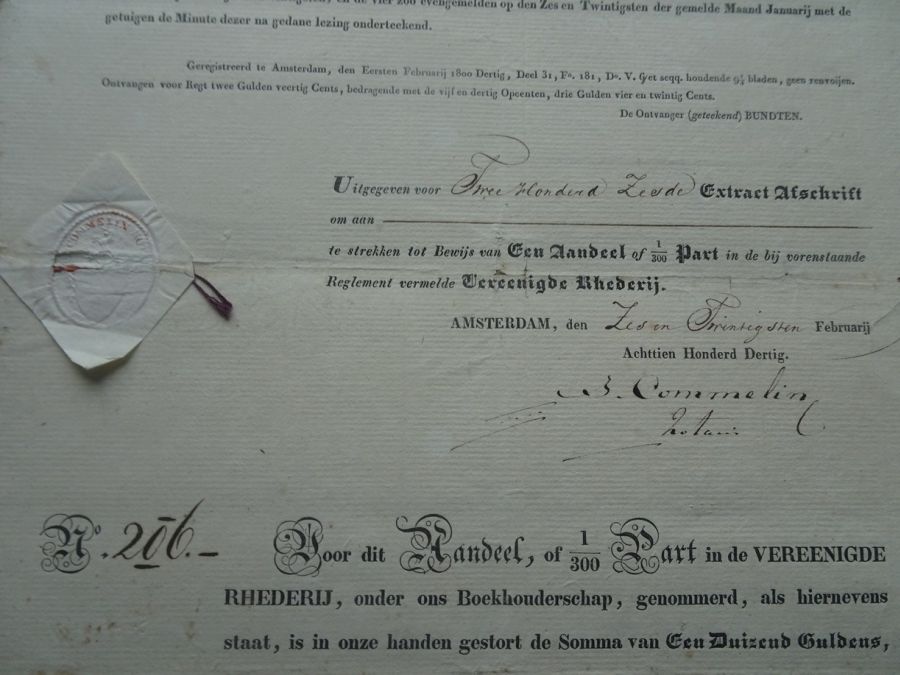 en de vier zoo evengemelden op den Zes en Twintigsten der gemelde Maand Januarij met de
getuigen de Minute dezer na gedane lezing onderteekend.
Geregistreerd te Amsterdam, den Eersten Februarij 1800 Dertig, Deel 31, Fo. 181, Do. V. 6, et seqq. houdende 9½ bladen, geen renvoijen.
Ontvangen voor Regt twee Gulden veertig Cents, bedragende met de vijf en dertig Opcenten, drie Gulden vier en twintig Cents.
De Ontvanger (geteekend) BUNDTEN.
COMMELIN
Uitgegeven voor Twee Honderd Zesde Extract Afschrift
om aan
te strekken tot Bewijs van Een Aandeel of 1/300 Part in de bij vorenstaande
Reglement vermelde Vereenigde Rhederij.
AMSTERDAM, den Zes en Twintigsten Februarij
Achttien Honderd Dertig.
B. Commelin
Notaris
No. 206.- Voor dit Aandeel, of 1/300 Part in de VEREENIGDE
RHEDERIJ, onder ons Boekhouderschap, genommerd, als hiernevens
staat, is in onze handen gestort de Somma van Een Duizend Guldens,